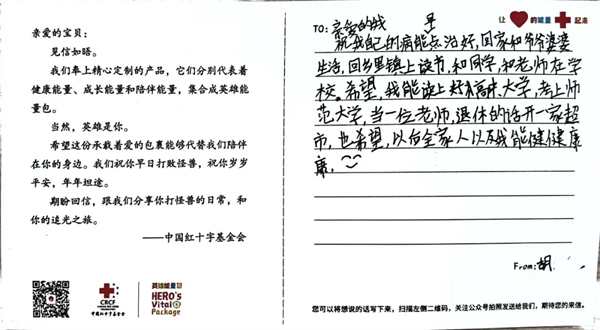 亲爱的宝贝：
见信如晤。
我们奉上精心定制的产品，它们分别代表着
健康能量、成长能量和陪伴能量，集合成英雄能
量包。
当然，英雄是你。
希望这份承载着爱的包裹能够代替我们陪伴
在你的身边。我们祝你早日打败怪兽，祝你岁岁
平安，年年坦途。
期盼回信，跟我们分享你打怪兽的日常，和
你的追光之旅。
——中国红十字基金会
CRCF
中国红十字基金会
英雄能量包
HERO's
Vital
Package
让 的能量 起来
TO: 亲爱的我
早
祝我自己的病能点治好，回家和爷爷婆婆
生活，回乡里镇上读书，和同学，和老师在学
校。希望，我能读上好高中，大学，考上师
范大学，当一位老师，退休的话开一家超
市，也希望，以后全家人以及我能健健康
康，
From: 胡
您可以将想说的话写下来，扫描左侧二维码，关注公众号拍照发送给我们，期待您的来信。